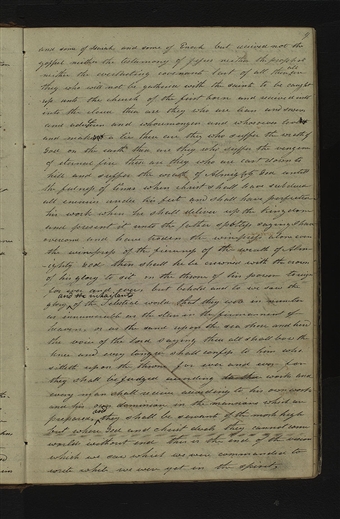 9
and some of Isaiah, and some of Enoch but recieved not the
gospel neither the testamony of jesus neither the prophets
neither the everlasting covenant last of all these all are
they who will not be gatherd with the saints to be caught
up unto the church of the first born and recieved
into the cloud these are they who are liars and
and adulterers and whoremongers and whosoever loves
and makes a lie these are they who suffer the wrath of
God on the earth these are they who suffer the vengence
of eternal fire these are they who are cast down to
hell and suffer the wrath of Almighty God until
the fulness of times when christ shall have subdued
all enimies under his feet and shall have perfected
his work when he shall deliver up the kingdom
and present it unto the father spotless saying I have
overcome and have troden the winepress alone even
the winepress of the fierceness of the wrath of Alm-
ighty God then shall he be crowned with the crown
of his glory to sit on the throne of his power to reign
for ever and ever but behold and lo we saw the
and the inhabitants
glory of the telestial world that they were in number
as innumerable as the stars in the firmament of
heaven or as the sand upon the sea shore and heard
the voice of the Lord saying these all shall bow the
knee and every tongue shall confess to him who
sitteth upon the throne for ever and ever for
they shall be judged according to their works and
every man shall recieve according to his own works
and his own dominion in the mansions which are
prepared and they shall be servants of the most high
but where God and christ dwels they cannot come
worlds without end this is the end of the vision
which we saw which we were commanded to
write while we were yet in the spirit,